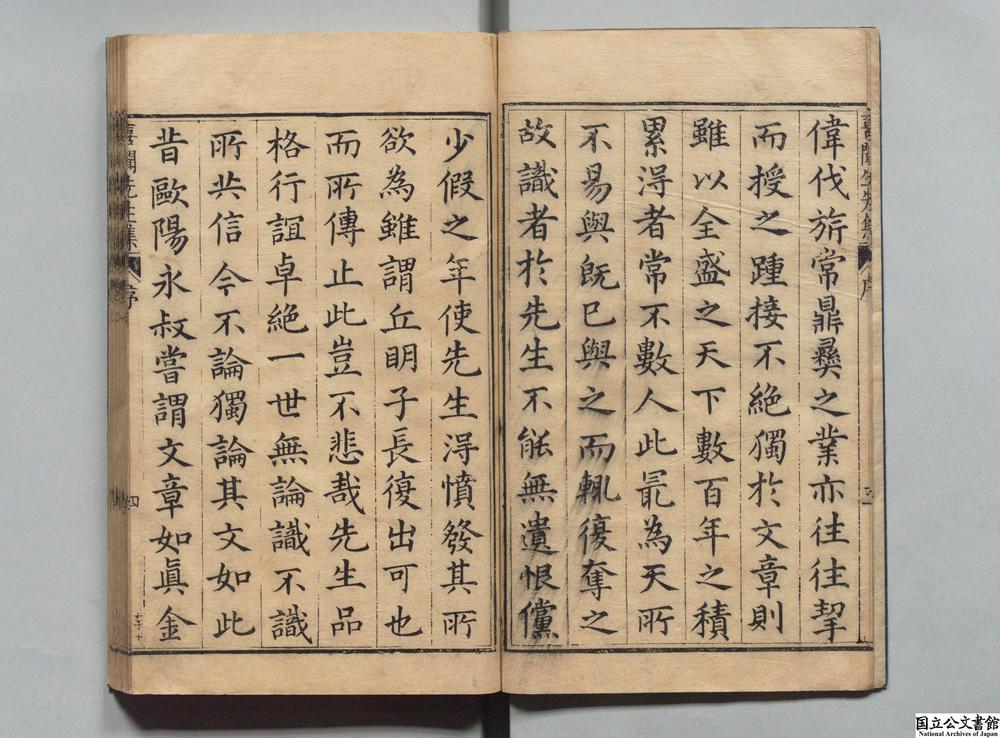 偉伐旂常鼎彝之業亦往往挈
而授之踵接不絕獨於文章則
雖以全盛之天下數百年之積
累淂者常不數人此㝡為天所
不昜與旣巳與之而輒復奪之
故識者於先生不能無遺恨儻
三
少假之年使先生淂憤發其所
欲為雖謂丘明子長復出可也
而所傳止此豈不悲哉先生品
格行誼卓絕一世無論識不識
所共信今不論獨論其文如此
昔歐陽永叔嘗謂文章如眞金
喜聞先生集
序
四
国立公文書館
National Archives of Japan